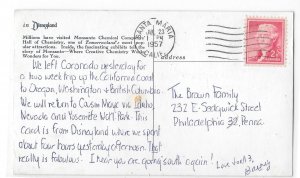 in Disneyland
Millions have visited Monsanto Chemical Company's
Hall of Chemistry, one of Tomorrowland's most popular
attractions. Inside, the fascinating exhibits tell the
story of Monsanto—Where Creative Chemistry Works
Wonders for You.
SANTA MARIA
JUL 23
PM
1957
CALIF.
2¢
address
We left Coronado yesterday for
a two week trip up the California Coast
to Oregon, Washington + British Columbia.
We will return to Casson Move via Idaho
Nevada and Yosemite Natl. Park. This
card is from Disneyland where we spent
about four hours yesterday afternoon. That
really is fabulous. I hear you are going south again!
Love
Betsy
The Brown Family
232 E-Sedgwick Street
Philadelphia 32, Penna